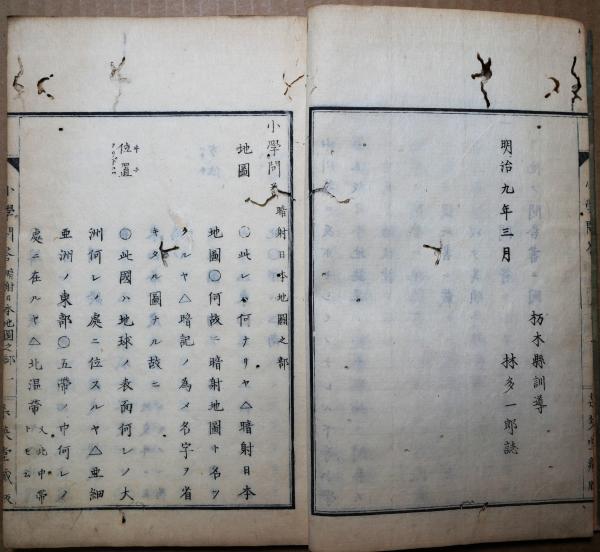 明治九年三月
栃木縣訓導
林多一郎誌
小學問答
暗射日本地圖之部
地圖
○此レハ何ナリヤ△暗射日本
地圖○何故ニ暗射地圖ト名ツ
クルヤ△暗記ノ為メ名字ヲ省
キタル圖ナル故ニ
位置
○此國ハ地球ノ表面何レノ大
洲何レノ處ニ位スルヤ△亜細
亜洲ノ東部○五帶ノ中何レノ
處ニ在ルヤ△北温帶又北中帶トモ云
小學問答
暗射日本地圖之部
一